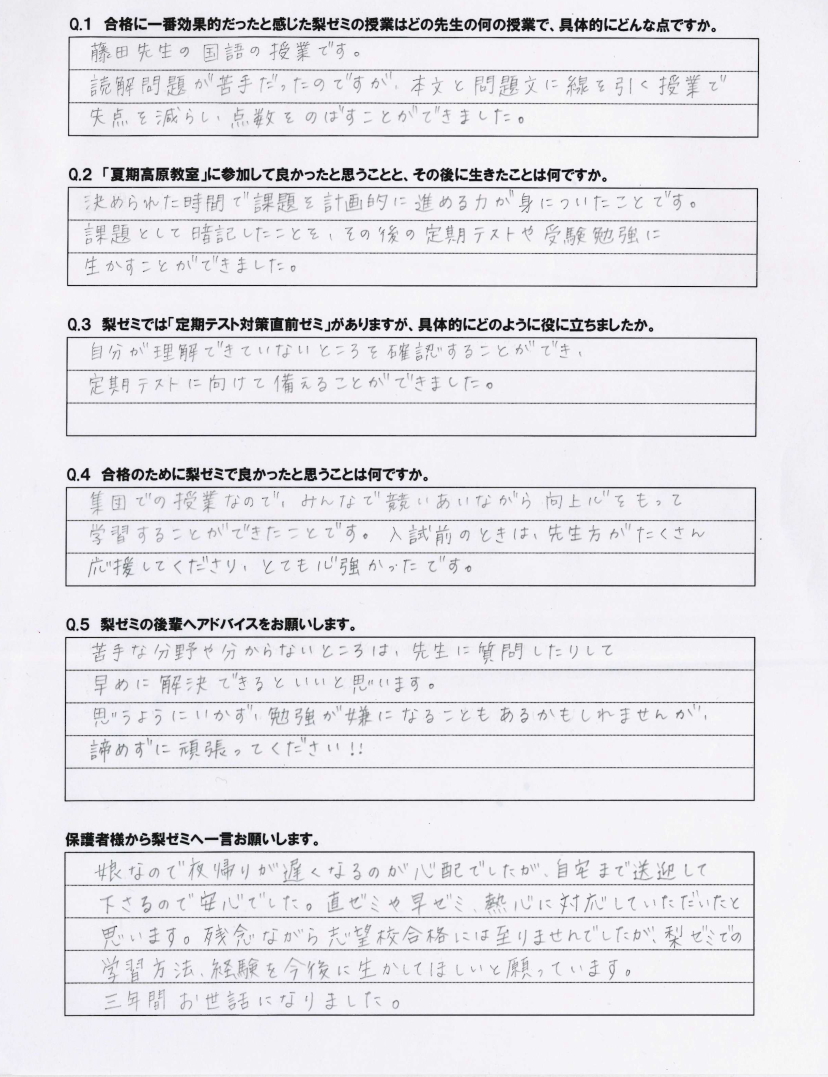 Q.1 合格に一番効果的だったと感じた梨ゼミの授業はどの先生の何の授業で、具体的にどんな点ですか。
藤田先生の国語の授業です。
読解問題が苦手だったのですが、本文と問題文に線を引く授業で
失点を減らし、点数をのばすことができました。
Q.2 「夏期高原教室」に参加して良かったと思うことと、その後に生きたことは何ですか。
決められた時間で課題を計画的に進める力が身についたことです。
課題として暗記したことを、その後の定期テストや受験勉強に
生かすことができました。
Q.3 梨ゼミでは「定期テスト対策直前ゼミ」がありますが、具体的にどのように役に立ちましたか。
自分が理解できていないところを確認することができ、
定期テストに向けて備えることができました。
Q.4 合格のために梨ゼミで良かったと思うことは何ですか。
集団での授業なので、みんなで競いあいながら向上心をもって
学習することができたことです。入試前のときは、先生方がたくさん
応援してくださり、とても心強かったです。
Q.5 梨ゼミの後輩へアドバイスをお願いします。
苦手な分野や分からないところは、先生に質問したりして
早めに解決できるといいと思います。
思うようにいかず、勉強が嫌になることもあるかもしれませんが、
諦めずに頑張ってください!!
保護者様から梨ゼミへ一言お願いします。
娘なので夜帰りが遅くなるのが心配でしたが、自宅まで送迎して
下さるので安心でした。直ゼミや早ゼミ、熱心に対応していただいたと
思います。残念ながら志望校合格には至りませんでしたが、梨ゼミでの
学習方法、経験を今後に生かしてほしいと願っています。
三年間お世話になりました。